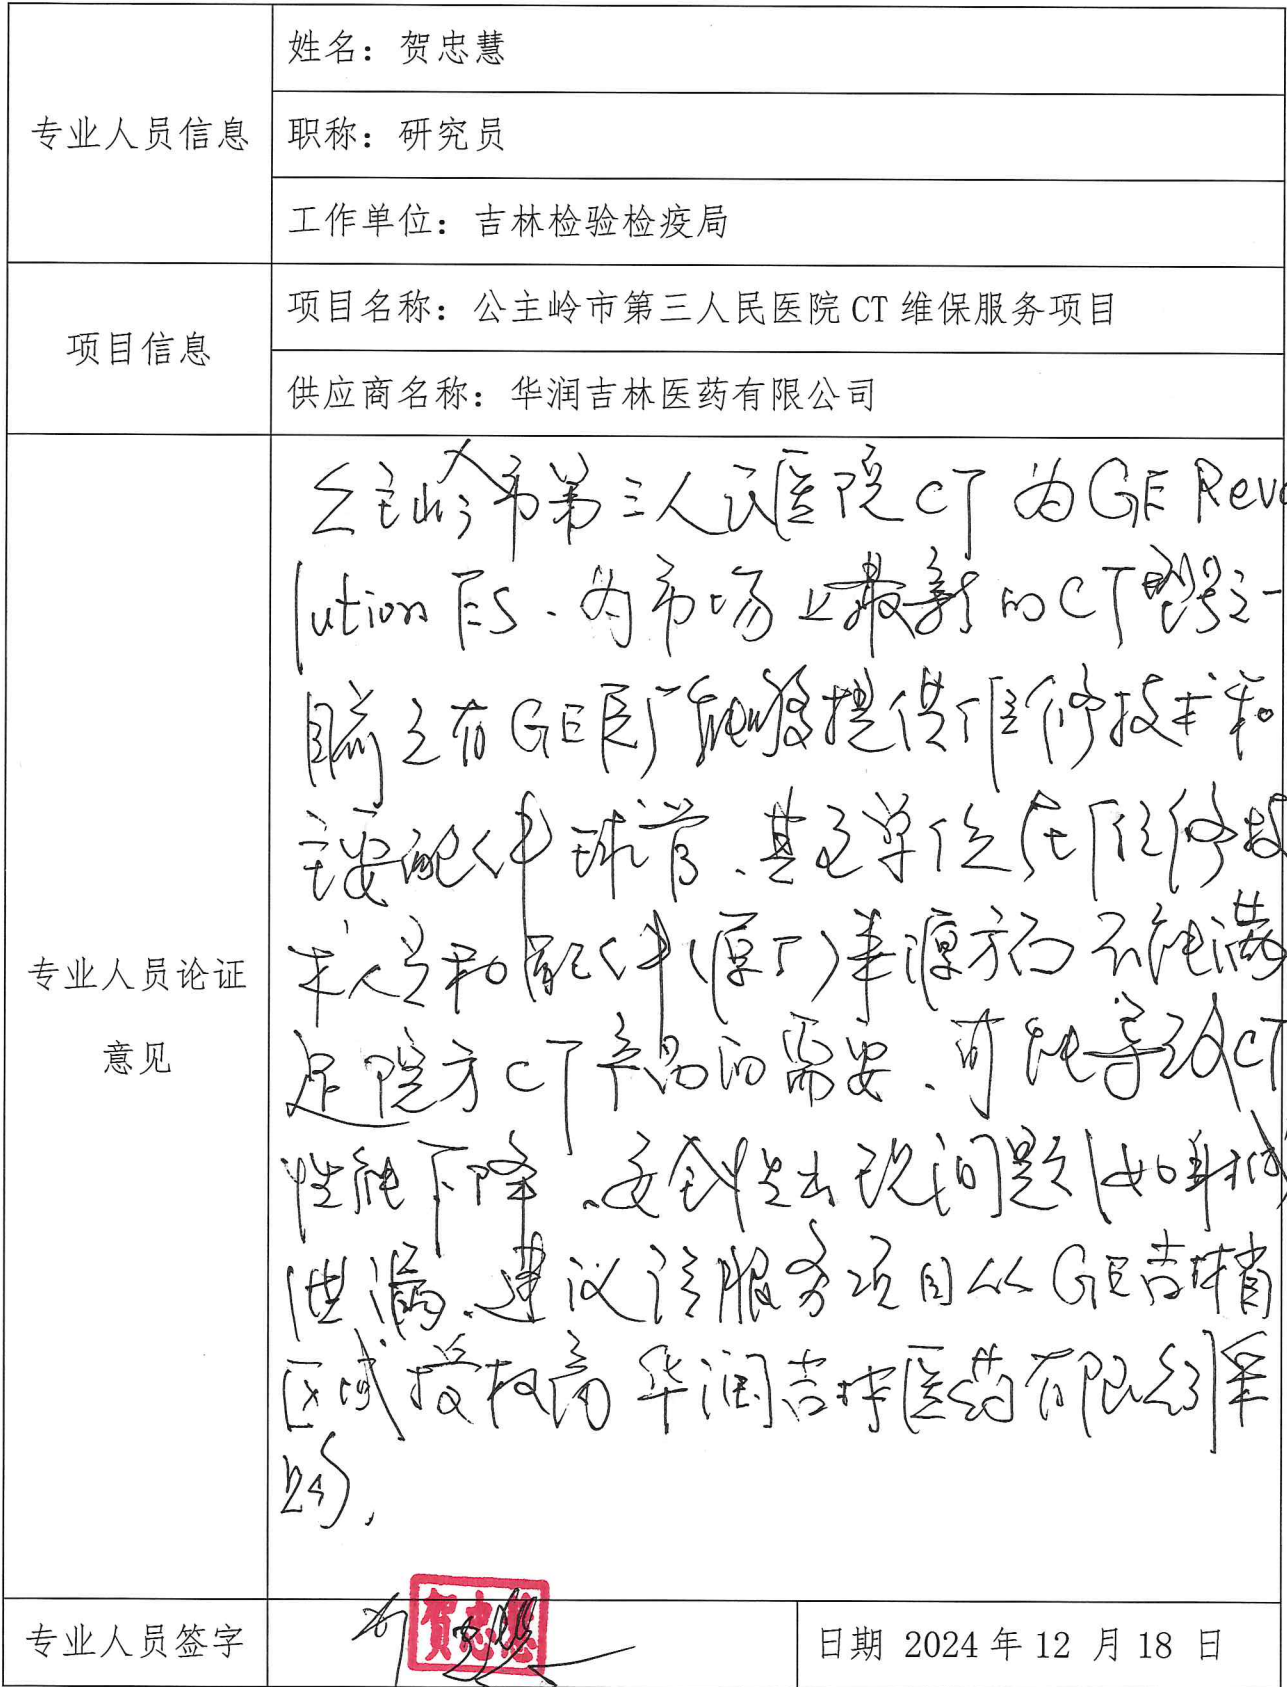 专业人员信息
姓名：贺忠慧
职称：研究员
工作单位：吉林检验检疫局
项目信息
项目名称：公主岭市第三人民医院 CT 维保服务项目
供应商名称：华润吉林医药有限公司
专业人员论证
意见
公主岭市第三人民医院 CT 为 GE Revo
lution ES、为市场上最新的CT型号之一
目前只有GE医疗能够提供维修技术和
主要配件球管、其它单位在维修技
术人员和配件(原厂)来源方面不能满
足院方CT产品的需要、可能导致CT
性能下降、安全性出现问题(如射线
泄漏、建议该服务项目从GE吉林省
区域授权商华润吉林医药有限公司采
购、
专业人员签字
贺忠慧
日期 2024 年 12 月 18 日